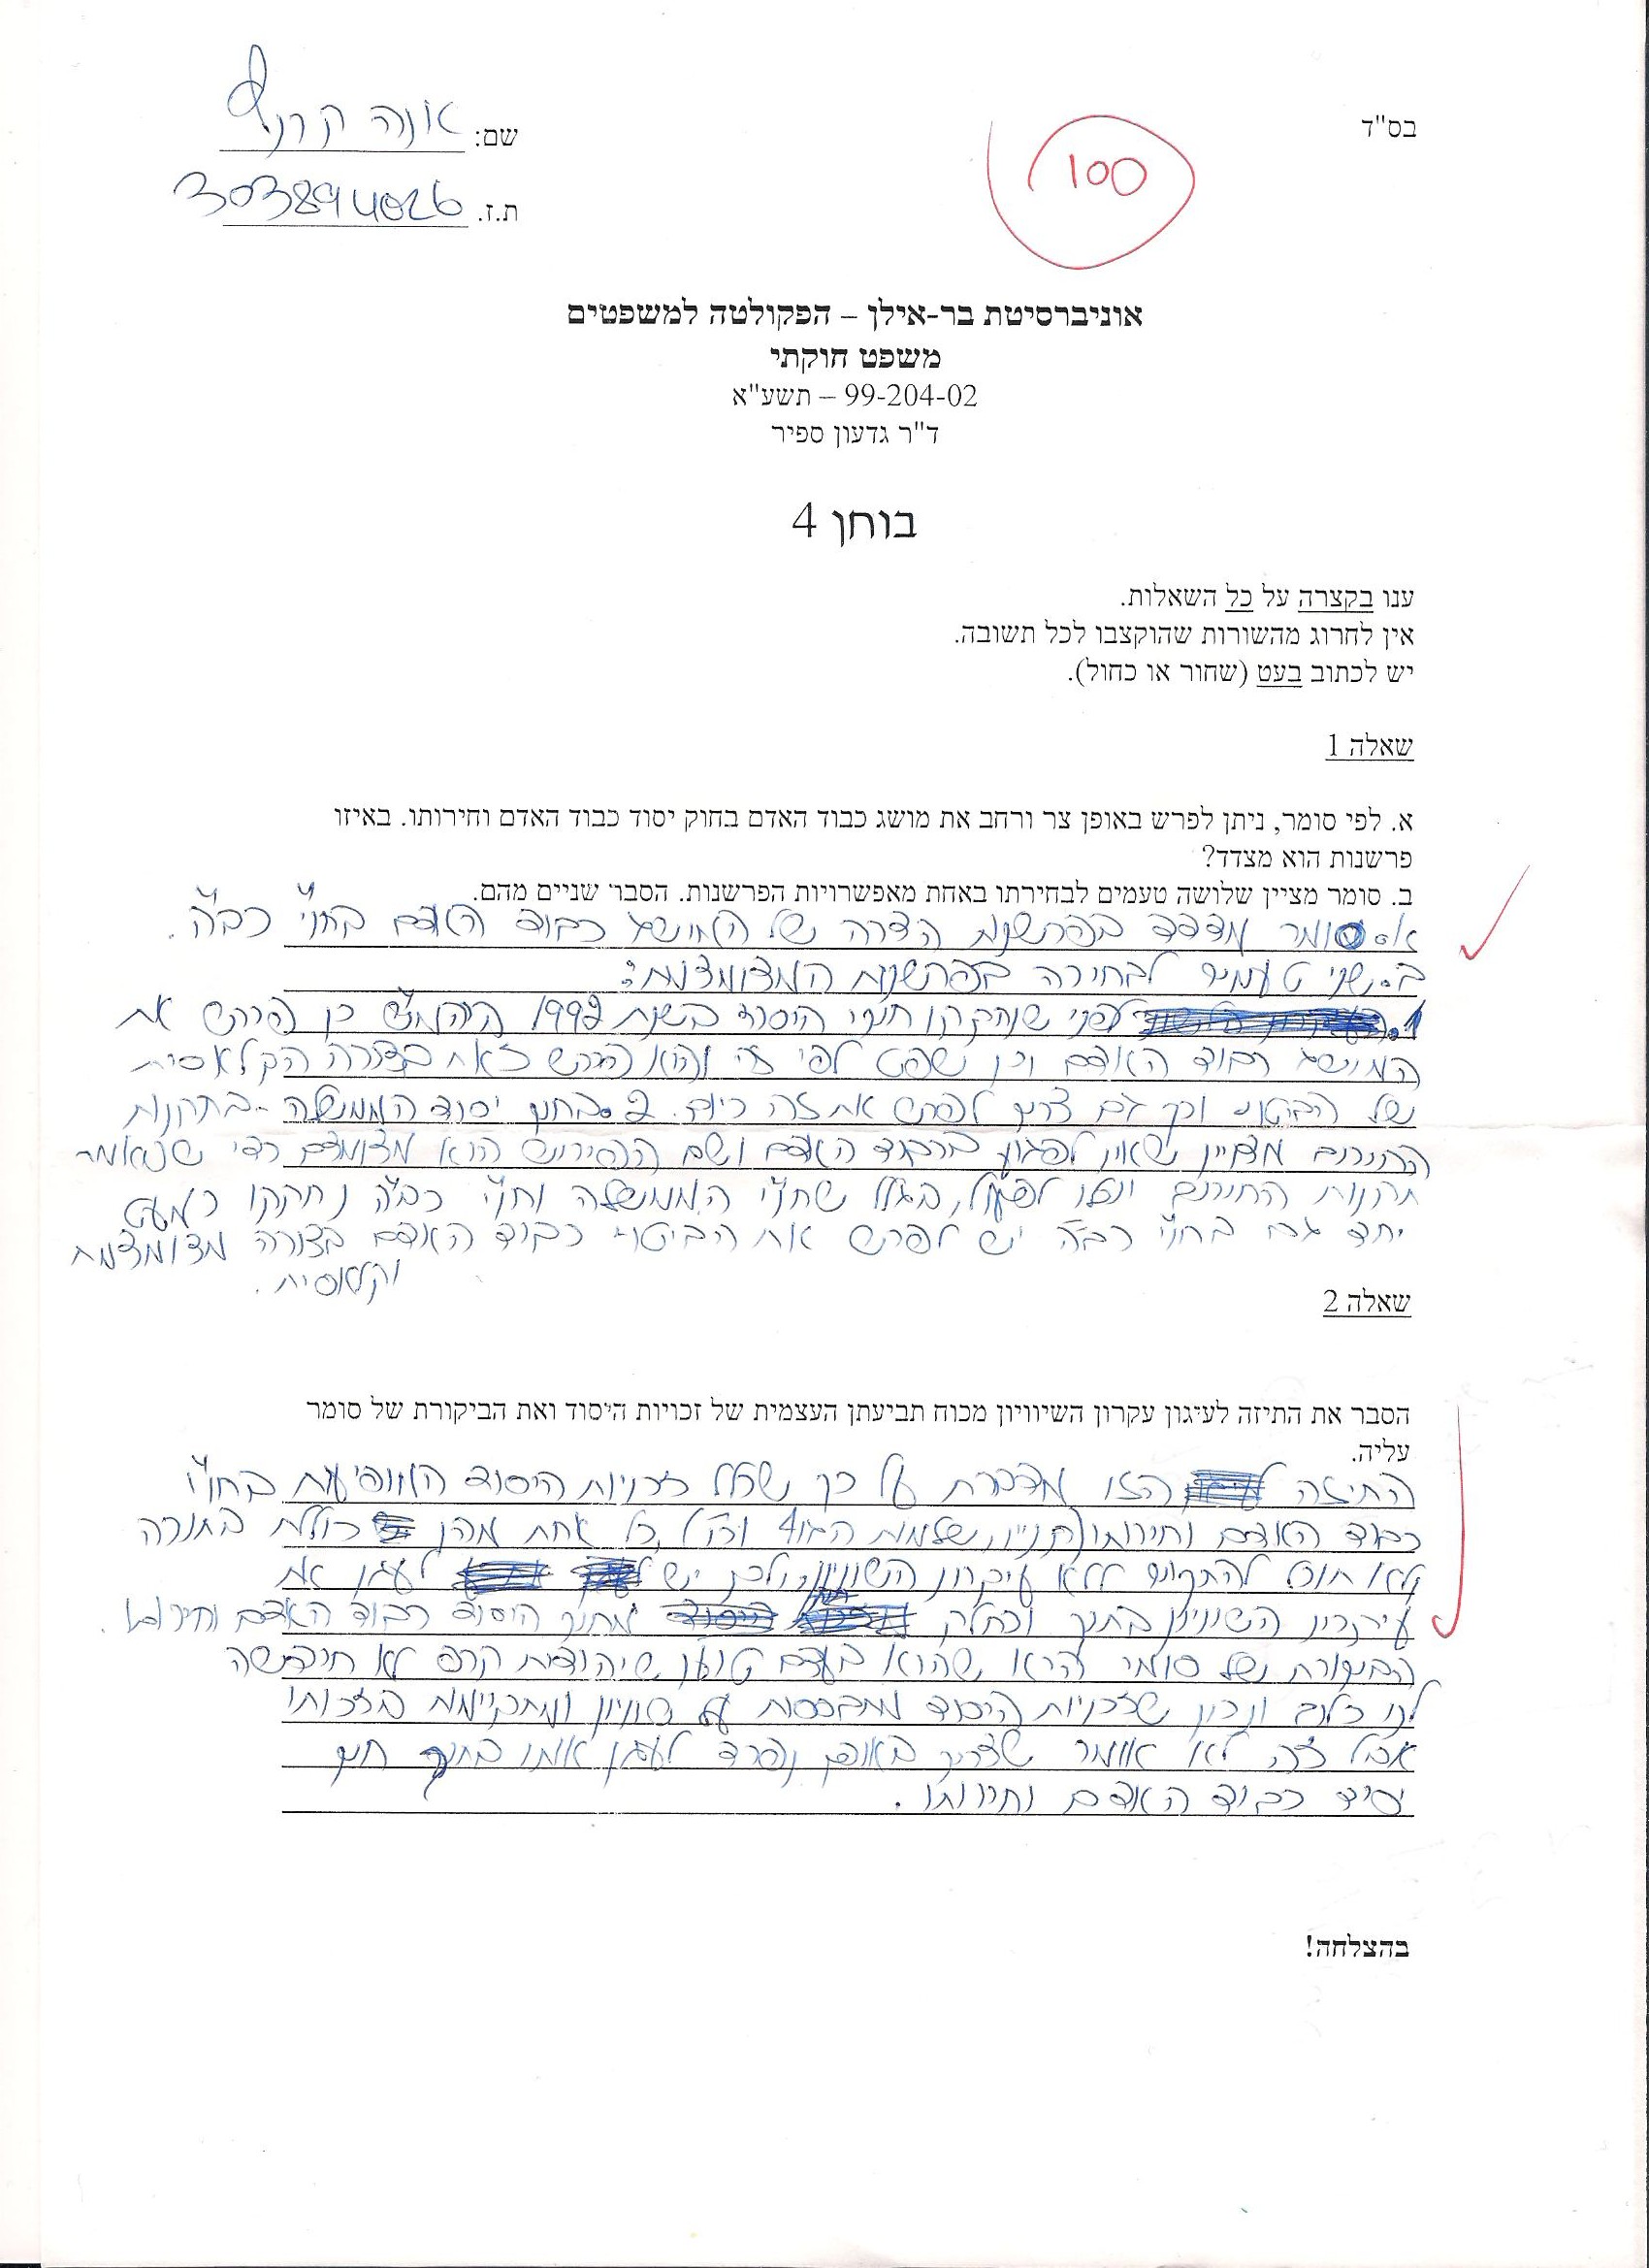 בס"ד
שם: אנה קרניאל
ת.ז. 303894026
100
אוניברסיטת בר-אילן – הפקולטה למשפטים
משפט חוקתי
99-204-02 – תשע"א
ד"ר גדעון ספיר
בוחן 4
ענו בקצרה על כל השאלות.
אין לחרוג מהשורות שהוקצבו לכל תשובה.
יש לכתוב בעט (שחור או כחול).
שאלה 1
א. לפי סומר, ניתן לפרש באופן צר ורחב את מושג כבוד האדם בחוק יסוד כבוד האדם וחירותו. באיזו
פרשנות הוא מצדד?
ב. סומר מציין שלושה טעמים לבחירתו באחת מאפשרויות הפרשנות. הסבר שניים מהם.
א. סומר מצדד בפרשנות הצרה של המושג כבוד האדם בחו"י כבה"א.
ב. שני טעמים לבחירה בפרשנות המצומצמת:
1. לפני שנחקקו חוקי היסוד בשנת 1992 ביהמ"ש כן פירש את
המושג כבוד האדם וכן שפט לפי זה והוא פירש זאת בצורה הקלאסית
של הביטוי וכך גם צריך לפרש את זה כיום. 2. בחוק יסוד הממשלה - בתקנות
החירום מצויין שאין לפגוע בכבוד האדם ושם הפירוש הוא מצומצם כדי
תקנות החירום יוכלו לפעול, בגלל שחו"י הממשלה וחו"י כבה"א נחקקו כמעט
יחד גם בחו"י כבה"א יש לפרש את הביטוי כבוד האדם בצורה מצומצמת
וקלאסית.
שאלה 2
הסבר את התיזה לעיגון עקרון השיוויון מכוח תביעתן העצמית של זכויות היסוד ואת הביקורת של סומר
עליה.
התיזה הזו מדברת על כך שכלל זכויות היסוד המופיעות בחו"י
כבוד האדם וחירותו (קניין, שלמות הגוף וכו'), כל אחת מהן כוללת בתוכה
ולא תוכל להתקיים ללא עיקרון השוויון, ולכן יש לעגן את
עיקרון השוויון בתוך וכחלק מחוק היסוד כבוד האדם וחירותו.
הביקורת של סומר היא שהוא בעצם טוען שיהודית קרפ לא חידשה
לנו כלום ונכון שזכויות היסוד מתבססות על שוויון ומתקיימות בזכותו
אבל זה לא אומר שצריך באופן נפרד לעגן אותו בתוך חוק
יסוד כבוד האדם וחירותו.
בהצלחה!